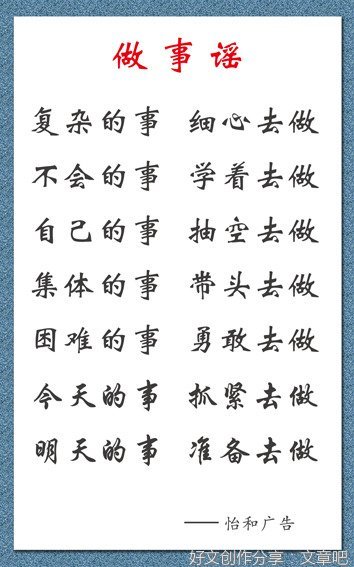 做事谣
复杂的事 细心去做
不会的事 学着去做
自己的事 抽空去做
集体的事 带头去做
困难的事 勇敢去做
今天的事 抓紧去做
明天的事 准备去做
—— 怡和广告
好文创作分享 · 文章吧